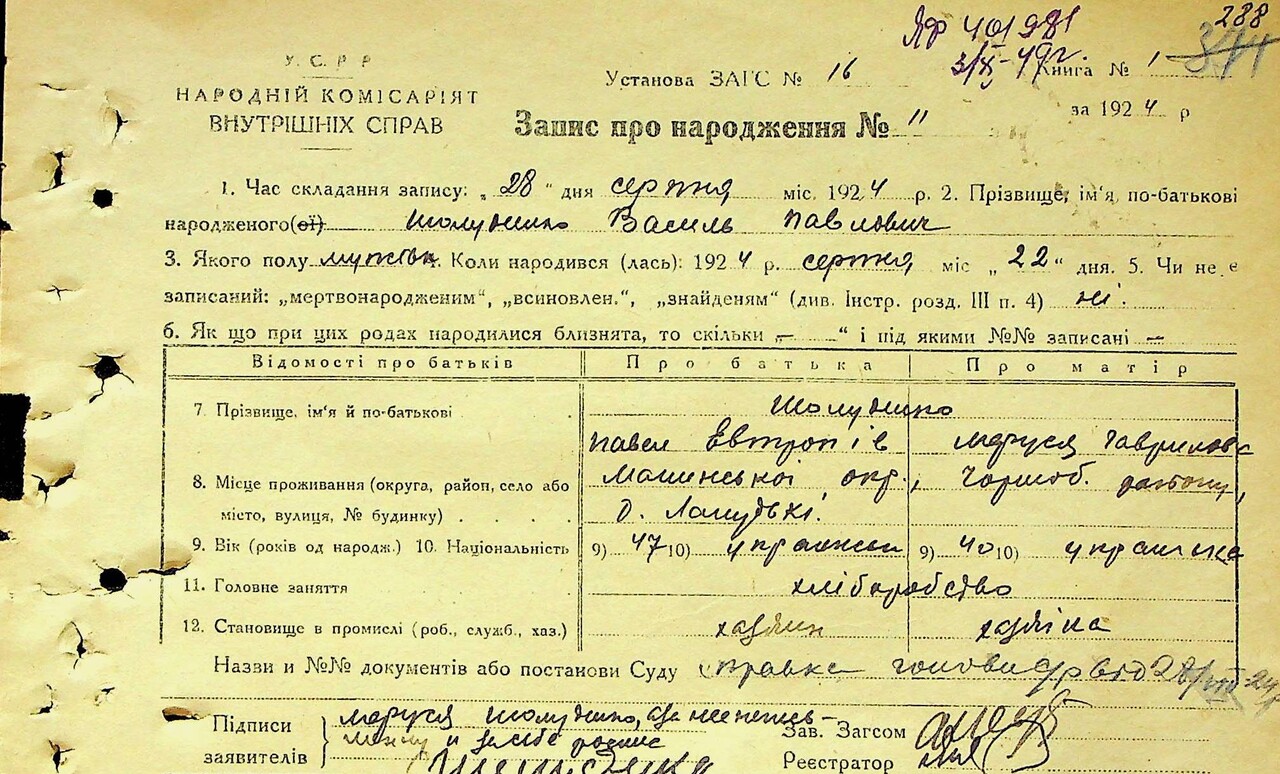 288
ЯФ 401981
У. С. Р. Р.
Установа ЗАГС № 16
3/XI-49г.
Книга № 1
НАРОДНІЙ КОМІСАРІЯТ
за 1924 р
ВНУТРІШНІХ СПРАВ
Запис про народження № 11
1. Час складання запису: „28“ дня серпня міс. 1924 р. 2. Прізвище, ім'я, по-батькові
народженого(ої) Шолудько Василь Павлович
3. Якого полу мужськ. Коли народився (лась): 1924 р. серпня міс „22“ дня. 5. Чи не є
записаний: „мертвонародженим“, „всиновлен.“, „знайденям“ (див. Інстр. розд. III п. 4) ні.
6. Як що при цих родах народилися близнята, то скільки „—“ і під якими №№ записані —
Відомості про батьків Про батька Про матір
7. Прізвище, ім'я й по-батькові
Шолудько
Павел Евтропіев Маруся Гавриловн
8. Місце проживання (округа, район, село або
окр., Чорноб. району,
місто, вулиця, № будинку)
9. Вік (років од народж.) 10. Національність 9) 47 10) українец 9) 40 10) українка
11. Головне заняття хліборобство
12. Становище в промислі (роб., служб., хаз.) хазяин хазяіка
Назви и №№ документів або постанови Суду справка голови с/р від 28/VIII-24
Підписи Маруся Шолудько, а за неписьм-
Зав. Загсом
заявителів
Реєстратор